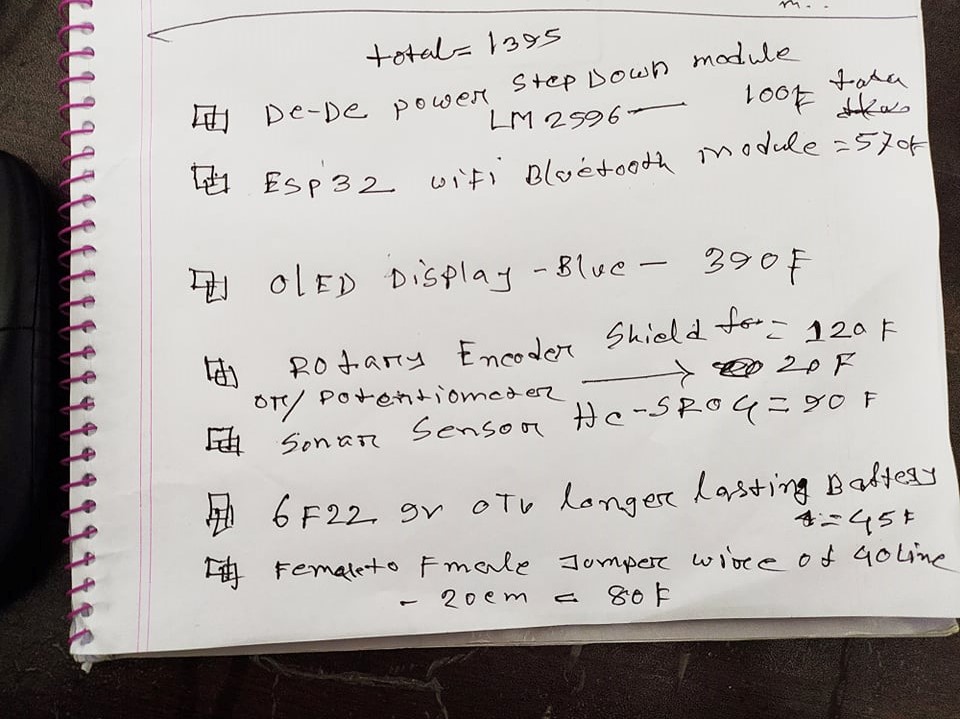 total = 1395
De-De power Step Down module
LM 2596 — 100৳ taka
Esp32 wifi Bluetooth module = 570৳
OlED Display - Blue — 390৳
Rotary Encoder Shield for = 120৳
or/ Potentiometer → 20৳
Sonar Sensor Hc-SR04 = 90৳
6F22 9v longer lasting Battery
= 45৳
Female to Fmale Jumper wire of 40 Line
- 20cm = 80৳